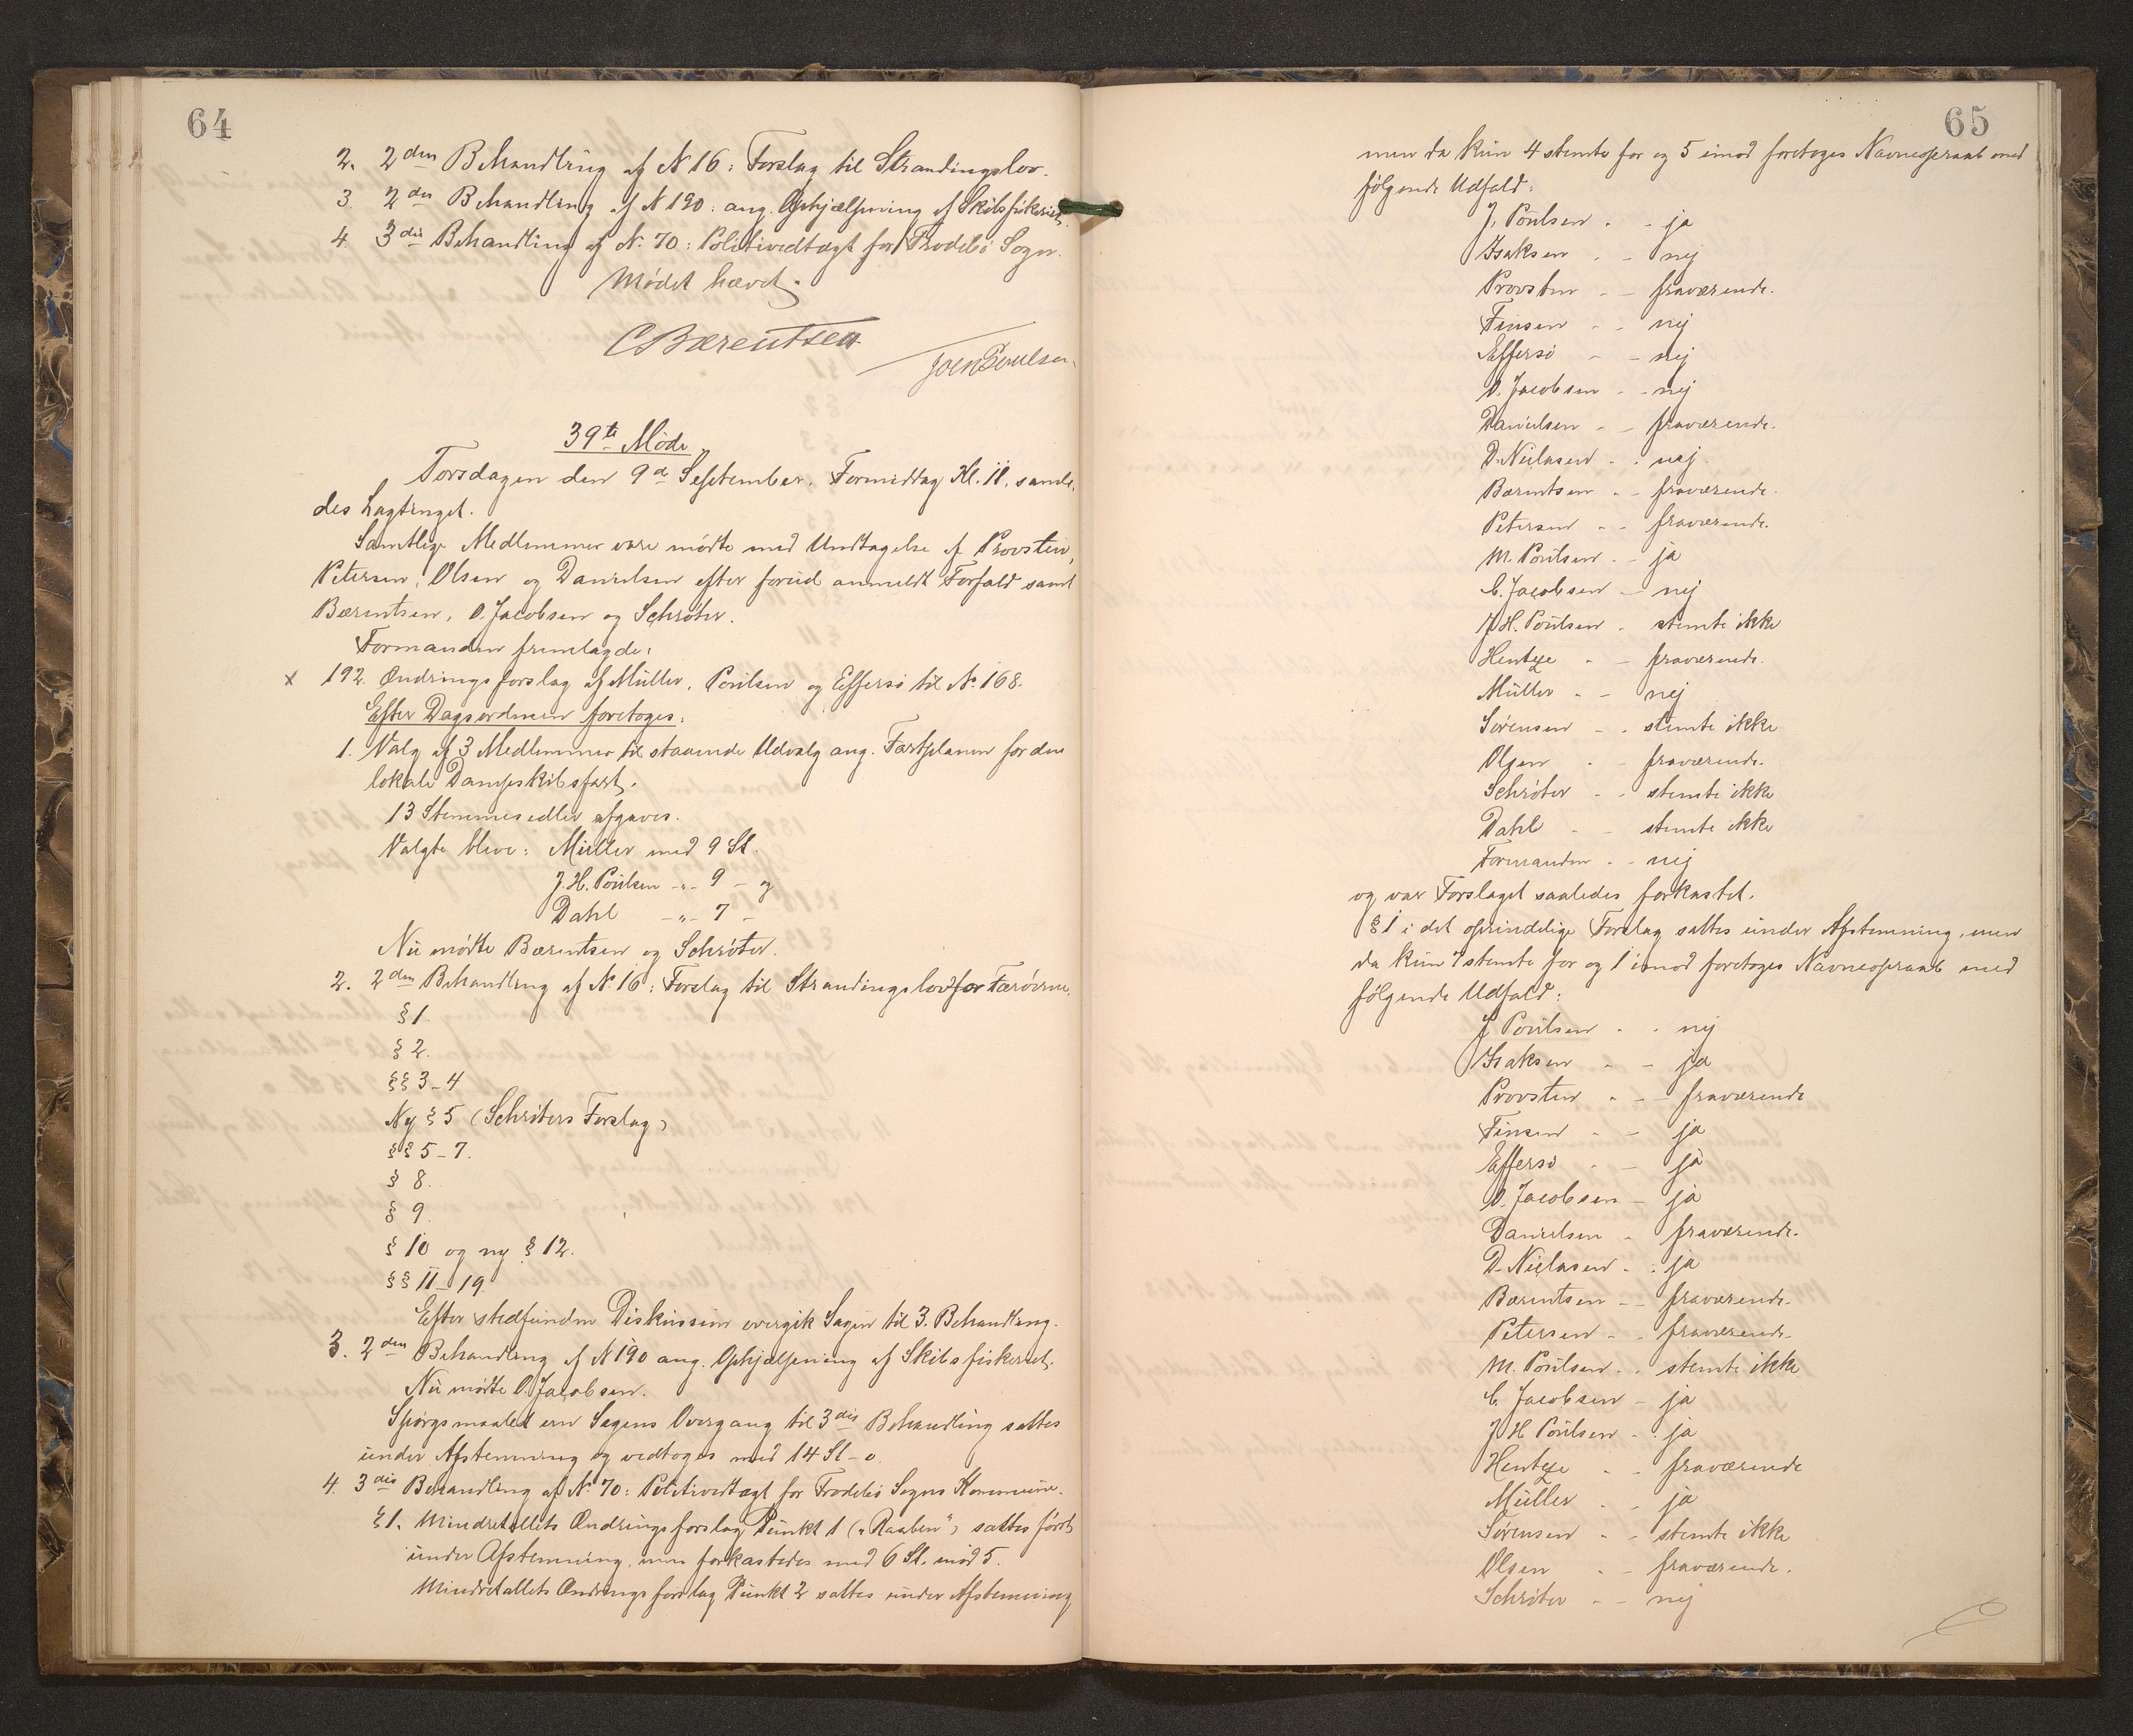 64
2. 2den Behandling af No 16: Forslag til Strandingslov.
3. 2den Behandling af No 190: ang. Ophjælpning af Skibsfiskeriet.
4. 3die Behandling af No. 70: Politivedtægt for Frodebø Sogn.
Mødet hævet.
C Bærentsen
Joen Poulsen
39te Møde
Torsdagen den 9de September, Formiddag Kl. 11, samle-
des Lagtinget.
Samtlige Medlemmer vare mødte med Undtagelse af Provsten,
Petersen, Olsen og Danielsen efter forud anmeldt Forfald samt
Bærentsen, O. Jacobsen og Schrøter.
Formanden fremlagde:
x 192. Ændringsforslag af Müller, Poulsen og Effersø til No. 168.
Efter Dagsordenen foretoges:
1. Valg af 3 Medlemmer til staaende Udvalg ang. Fartplanen for den
lokale Dampskibsfart.
13 Stemmesedler afgaves.
Valgte bleve: Müller med 9 St.
J. H. Poulsen -"- 9 - og
Dahl -"- 7 -
Nu mødte Bærentsen og Schrøter.
2. 2den Behandling af No. 16: Forslag til Strandingslov for Færøerne.
§ 1.
§ 2.
§§ 3-4
Ny § 5 (Schrøters Forslag)
§§ 5-7.
§ 8.
§ 9.
§ 10 og ny § 12.
§§ 11-19.
Efter stedfunden Diskussion overgik Sagen til 3. Behandling.
3. 2den Behandling af No 190 ang. Ophjælpning af Skibsfiskeriet.
Nu mødte O. Jacobsen.
Spørgsmaalet om Sagens Overgang til 3die Behandling sattes
under Afstemning og vedtoges med 14 St - 0.
4. 3die Behandling af No. 70: Politivedtægt for Frodebø Sogns Kommune.
§ 1. Mindretallets Ændringsforslag Punkt 1 („Raaben“) sattes først
under Afstemning, men forkastedes med 6 St. mod 5.
Mindretallets Ændringsforslag Punkt 2 sattes under Afstemning
65
men da kun 4 stemte for og 5 imod foretoges Navneopraab med
følgende Udfald:
J. Poulsen - - ja
Isaksen - - nej
Provsten - - fraværende.
Finsen - - nej
Effersø - - nej
O. Jacobsen - - nej
Danielsen - - fraværende.
D. Nielasen - - nej.
Bærentsen - - fraværende.
Petersen - - fraværende.
M. Poulsen - - ja
C. Jacobsen - nej
J. H. Poulsen - stemte ikke
Hentze - - fraværende.
Müller - - nej
Sørensen - - stemte ikke
Olsen - - fraværende.
Schrøter - - stemte ikke
Dahl - - stemte ikke
Formanden - - nej
og var Forslaget saaledes forkastet.
§ 1 i det oprindelige Forslag sattes under Afstemning, men
da kun 7 stemte for og 1 imod foretoges Navneopraab med
følgende Udfald:
J Poulsen - - nej
Isaksen - - ja
Provsten - - fraværende
Finsen - - ja
Effersø - - ja
O. Jacobsen - ja
Danielsen - fraværende.
D. Nielasen - - ja
Bærentsen - - fraværende.
Petersen - - fraværende
M. Poulsen - - stemte ikke
C. Jacobsen - ja
J H Poulsen - - ja
Hentze - - fraværende
Müller - - ja
Sørensen - - stemte ikke
Olsen - - fraværende.
Schrøter - - nej